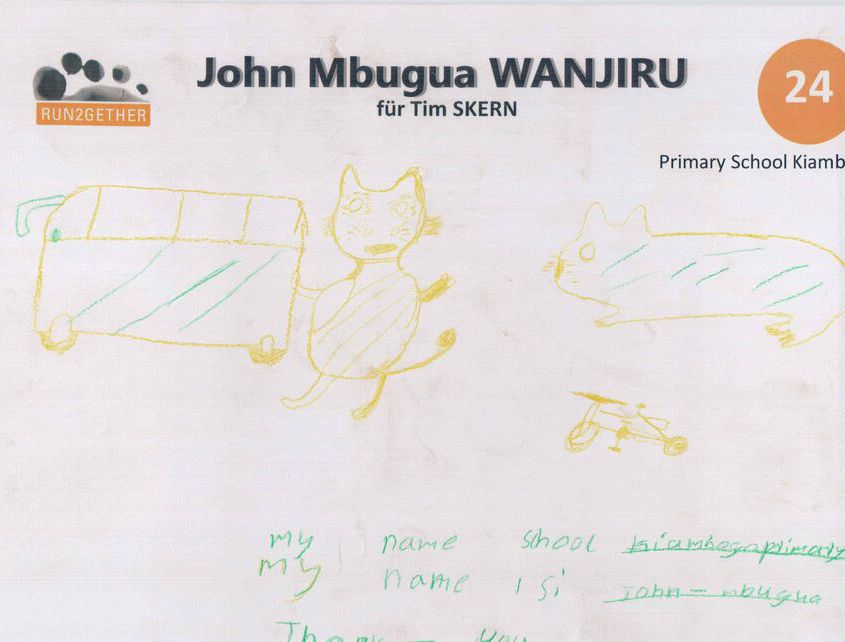 RUN2GETHER
John Mbugua WANJIRU
für Tim SKERN
24
Primary School Kiamb
my name school kiambogoprimary
My name isi John - mbugua
Thank - you